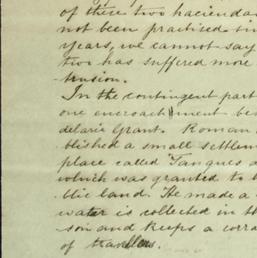 of these two haciendas
not been practiced
years, we cannot say
two has suffered more
tension.
In the contingent part
one encroachment be
delaris Grant. Roman
blished a small settlem
place called Tanques
which was granted to
blic land. He made a
water is collected in th
son and keeps a corra
of travellers.